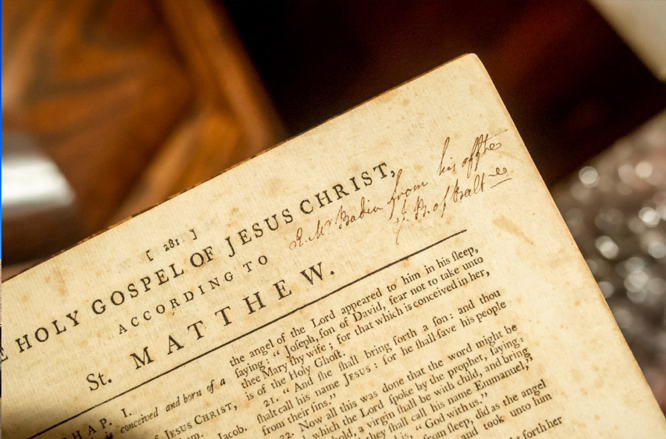 [ 281 ]
E HOLY GOSPEL OF JESUS CHRIST,
ACCORDING TO
St. MATTHEW.
R. Mr Badin from his
Bp. of Balt
HAP. I.
conceived and born of a
of JESUS CHRIST,
Jacob.
the angel of the Lord appeared to him in his ſleep,
ſaying: "Joſeph, ſon of David, fear not to take unto
thee Mary thy wife; for that which is conceived in her,
is of the Holy Ghoſt.
21. "And ſhe ſhall bring forth a ſon: and thou
ſhalt call his name JESUS: for he ſhall ſave his people
from their ſins."
22. Now all this was done that the word might be
which the Lord ſpoke by the prophet, ſaying:
a virgin ſhall be with child, and bring
they ſhall call his name Emmanuel,"
is, "God with us."
from ſleep, did as the angel
and took unto him
forth her